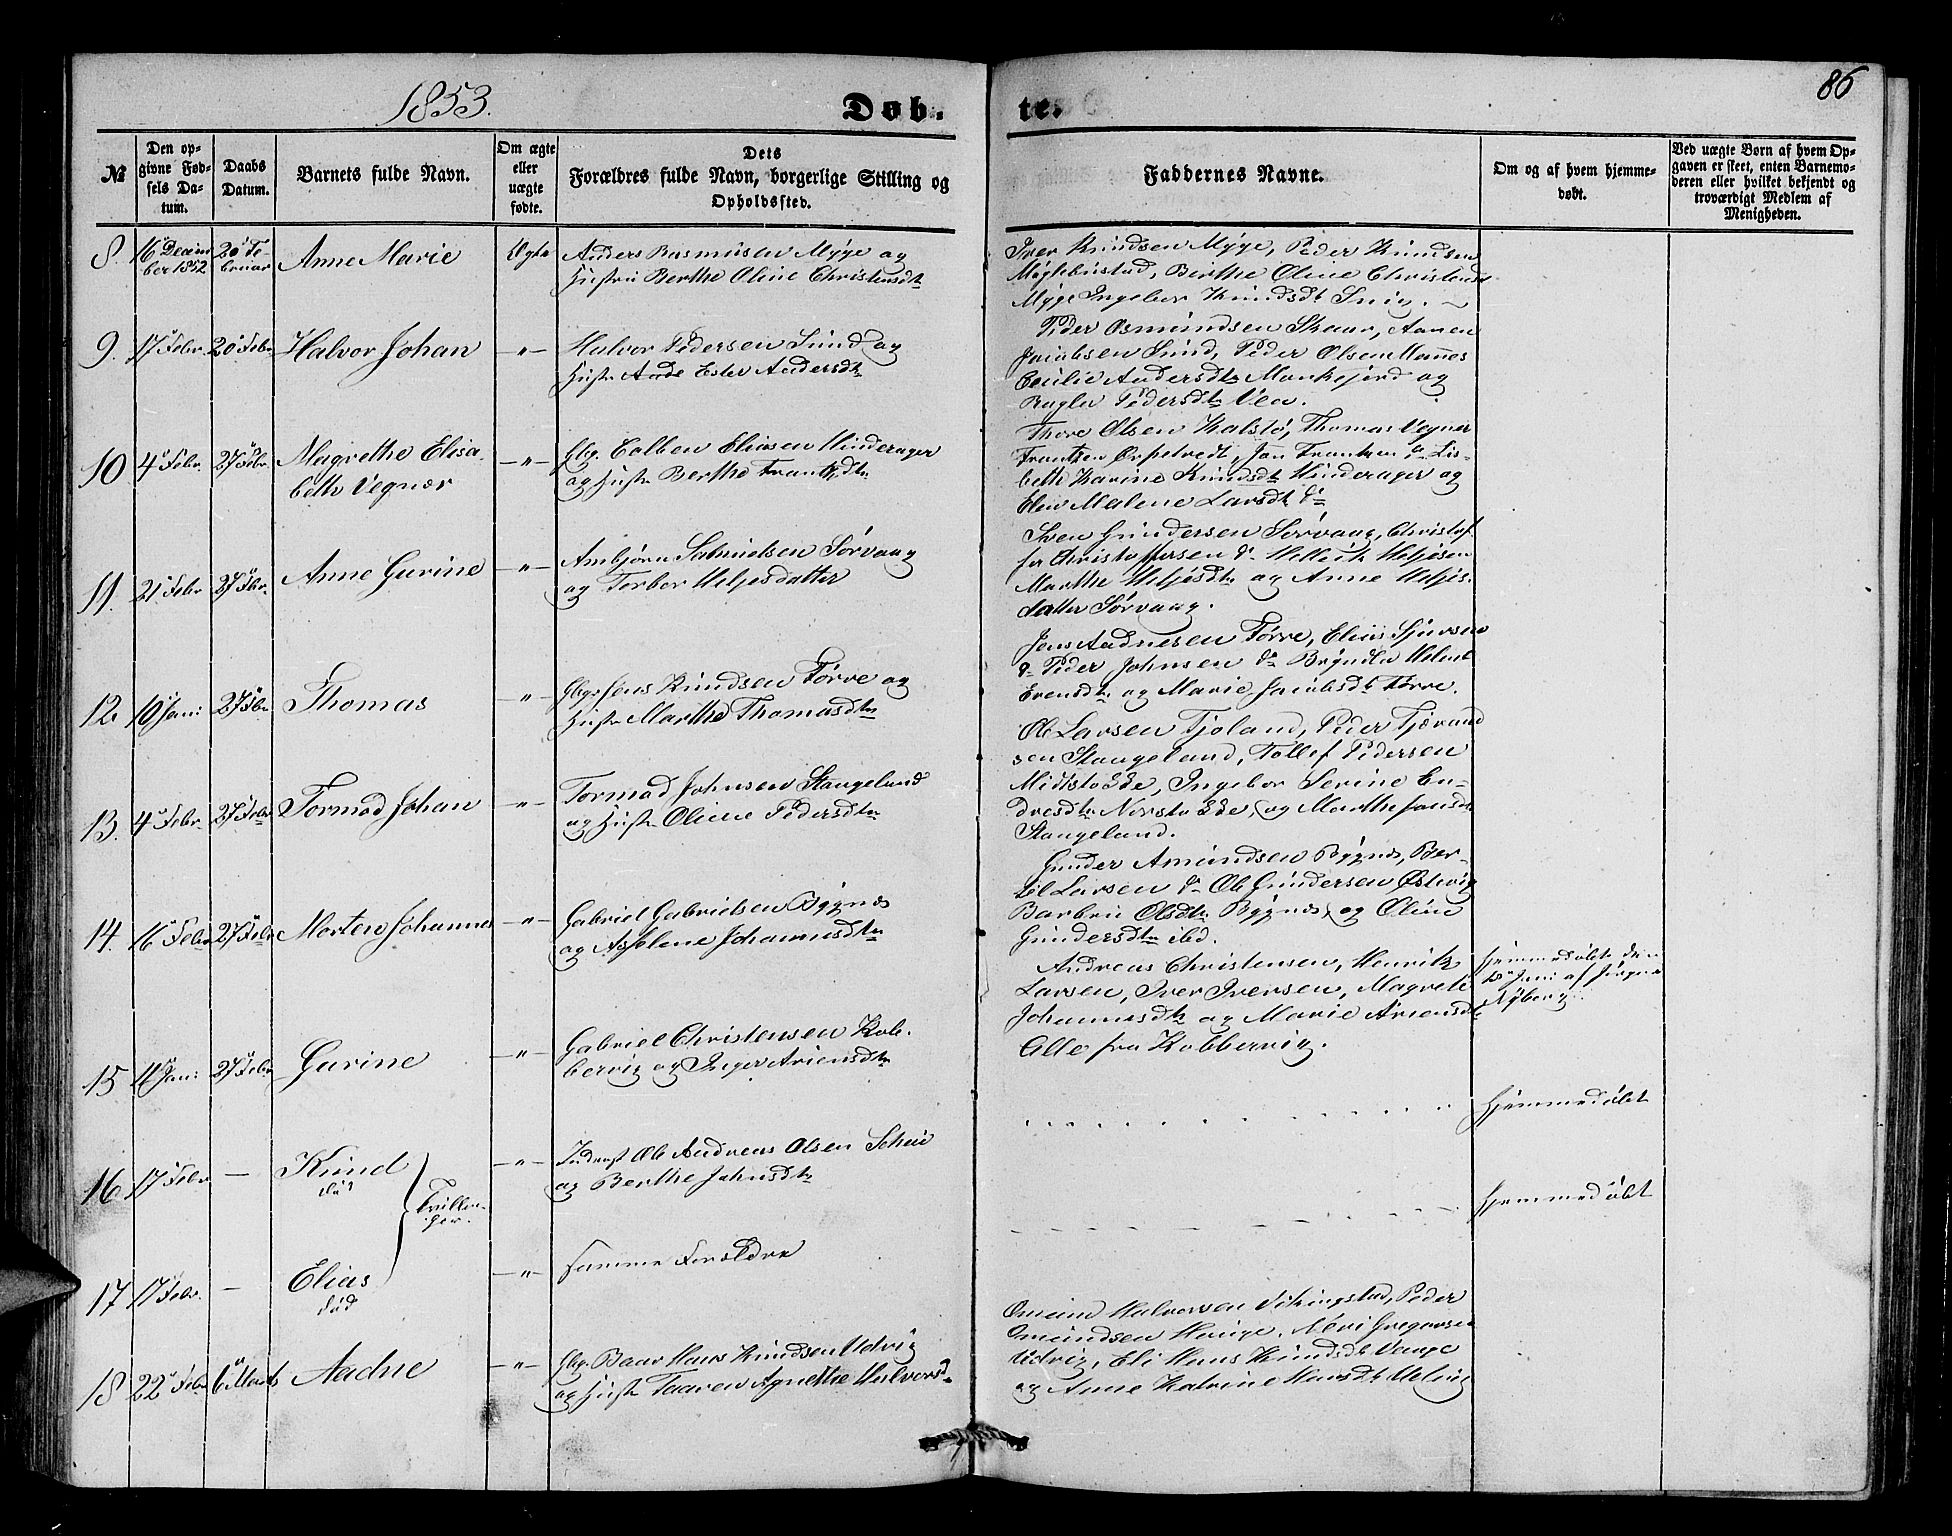 1853.
Døb.
te.
86
№
Den op-
givne Fød-
sels Da-
tum.
Daabs
Datum.
Barnets fulde Navn.
Om ægte
eller
uægte
fødte.
Dets
Forældres fulde Navn, borgerlige Stilling og
Opholdssted.
Faddernes Navne.
Om og af hvem hjemme-
døbt.
Ved uægte Børn af hvem Op-
gaven er skeet, enten Barnemo-
deren eller hvilket bekjendt og
troværdigt Medlem af
Menigheden.
8.
16 Decem
ber 1852
20 Fe-
bruar
Anne Marie
Ægte
Anders Rasmussen Myge og
Hustru Berthe Oline Christensdtr
Iver Knudsen Myge, Peder Knudsen
Berthe Oline Christensdtr
Myge Ingebor Knudsdtr
9.
17 Febr
20 Febr
Halvor Johan
-"-
Halvor Pedersen Sund og
Hustr Ester Andersdtr
Peder Osmundsen Skaar,
Jacobsen Sund, Peder Olsen Mannes
Cecilie Andersdtr og
Pedersdtr Vea.
10
4 Febr.
27 Febr.
Magrethe Elisa-
beth Vegner
-"-
Gbr. Colben Eliasen Hinderager
og Hustr Berthe Frantzdtr
Thore Olsen Kalstø, Thomas Vegner
Frantzen Jan Frantzen do Lis-
beth Karine Knudsdtr Hinderager og
Elen Malene Larsdtr do
11.
21 Febr
27 Febr.
Anne Gurine
-"-
Ambjørn Samuelsen Sørvaag
og Torbor Heljesdatter
Sven Gundersen Sørvaag, Christof-
fer Christoffersen do Helleik Heljesen
Marthe Heljesdtr og Anne Heljes-
datter Sørvaag.
12
10 Jan:
27 Febr
Thomas
-"-
Gbr Jens Knudsen Førre og
Hustr Marthe Thomasdtr
Jens Aadnesen Førre, Elias Sjursen
do Peder Johnsen do
og Marie Jacobsdt Førre.
13.
4 Febr.
27 Febr
Tormod Johan
-"-
Tormod Johnsen Stangeland
og Hustr Oline Pedersdtr
Ole Larsen Tjoland, Peder Tjerand
sen Stangeland, Tollef Pedersen
Midtstokke, Ingebor Serine En-
dresdtr Norstokke, og Marthe Jansdtr
Stangeland.
14.
16 Febr
27 Febr
Morten Johannes
-"-
Gabriel Gabrielsen Bygnes
og Asselene Johannesdtr
Gunder Amundsen Bygnes, Ber-
til Larsen do Ole Gundersen Østevig
Barbru Olsdtr Bygnes, og Oline
Gundersdtr ibd.
15
11 Jan:
27 Febr
Gurine
-"-
Gabriel Christensen Kob-
bervig og Inger Ariensdtr
Andreas Christensen, Henrik
Larsen, Iver Iversen, Magrete
Johannesdtr og Marie Ariensdtr
Alle fra Kobbervig.
Hjemmedøbt den
Jan: af Jørgen
Nyberg
16
17 Febr
-
Knud
død
Tvillin-
ger.
-"-
Inderst Ole Andreas Olsen
og Berthe Johnsdtr
Hjemmedøbt
17
17 Febr.
-
Elias
død
-"-
Samme Forældre
Hjemmedøbt
18
22 Febr
6 Marts
Aadne
-"-
Gbr. Baar Hans Knudsen Udvig
og Hustr Taaren Agnethe Halvorsd.
Omund Halvorsen Vikingstad, Peder
Omundsen Hauge,
Udvig, Eli Hans Knudsdt Vaage
og Anne Katrine Hansdt